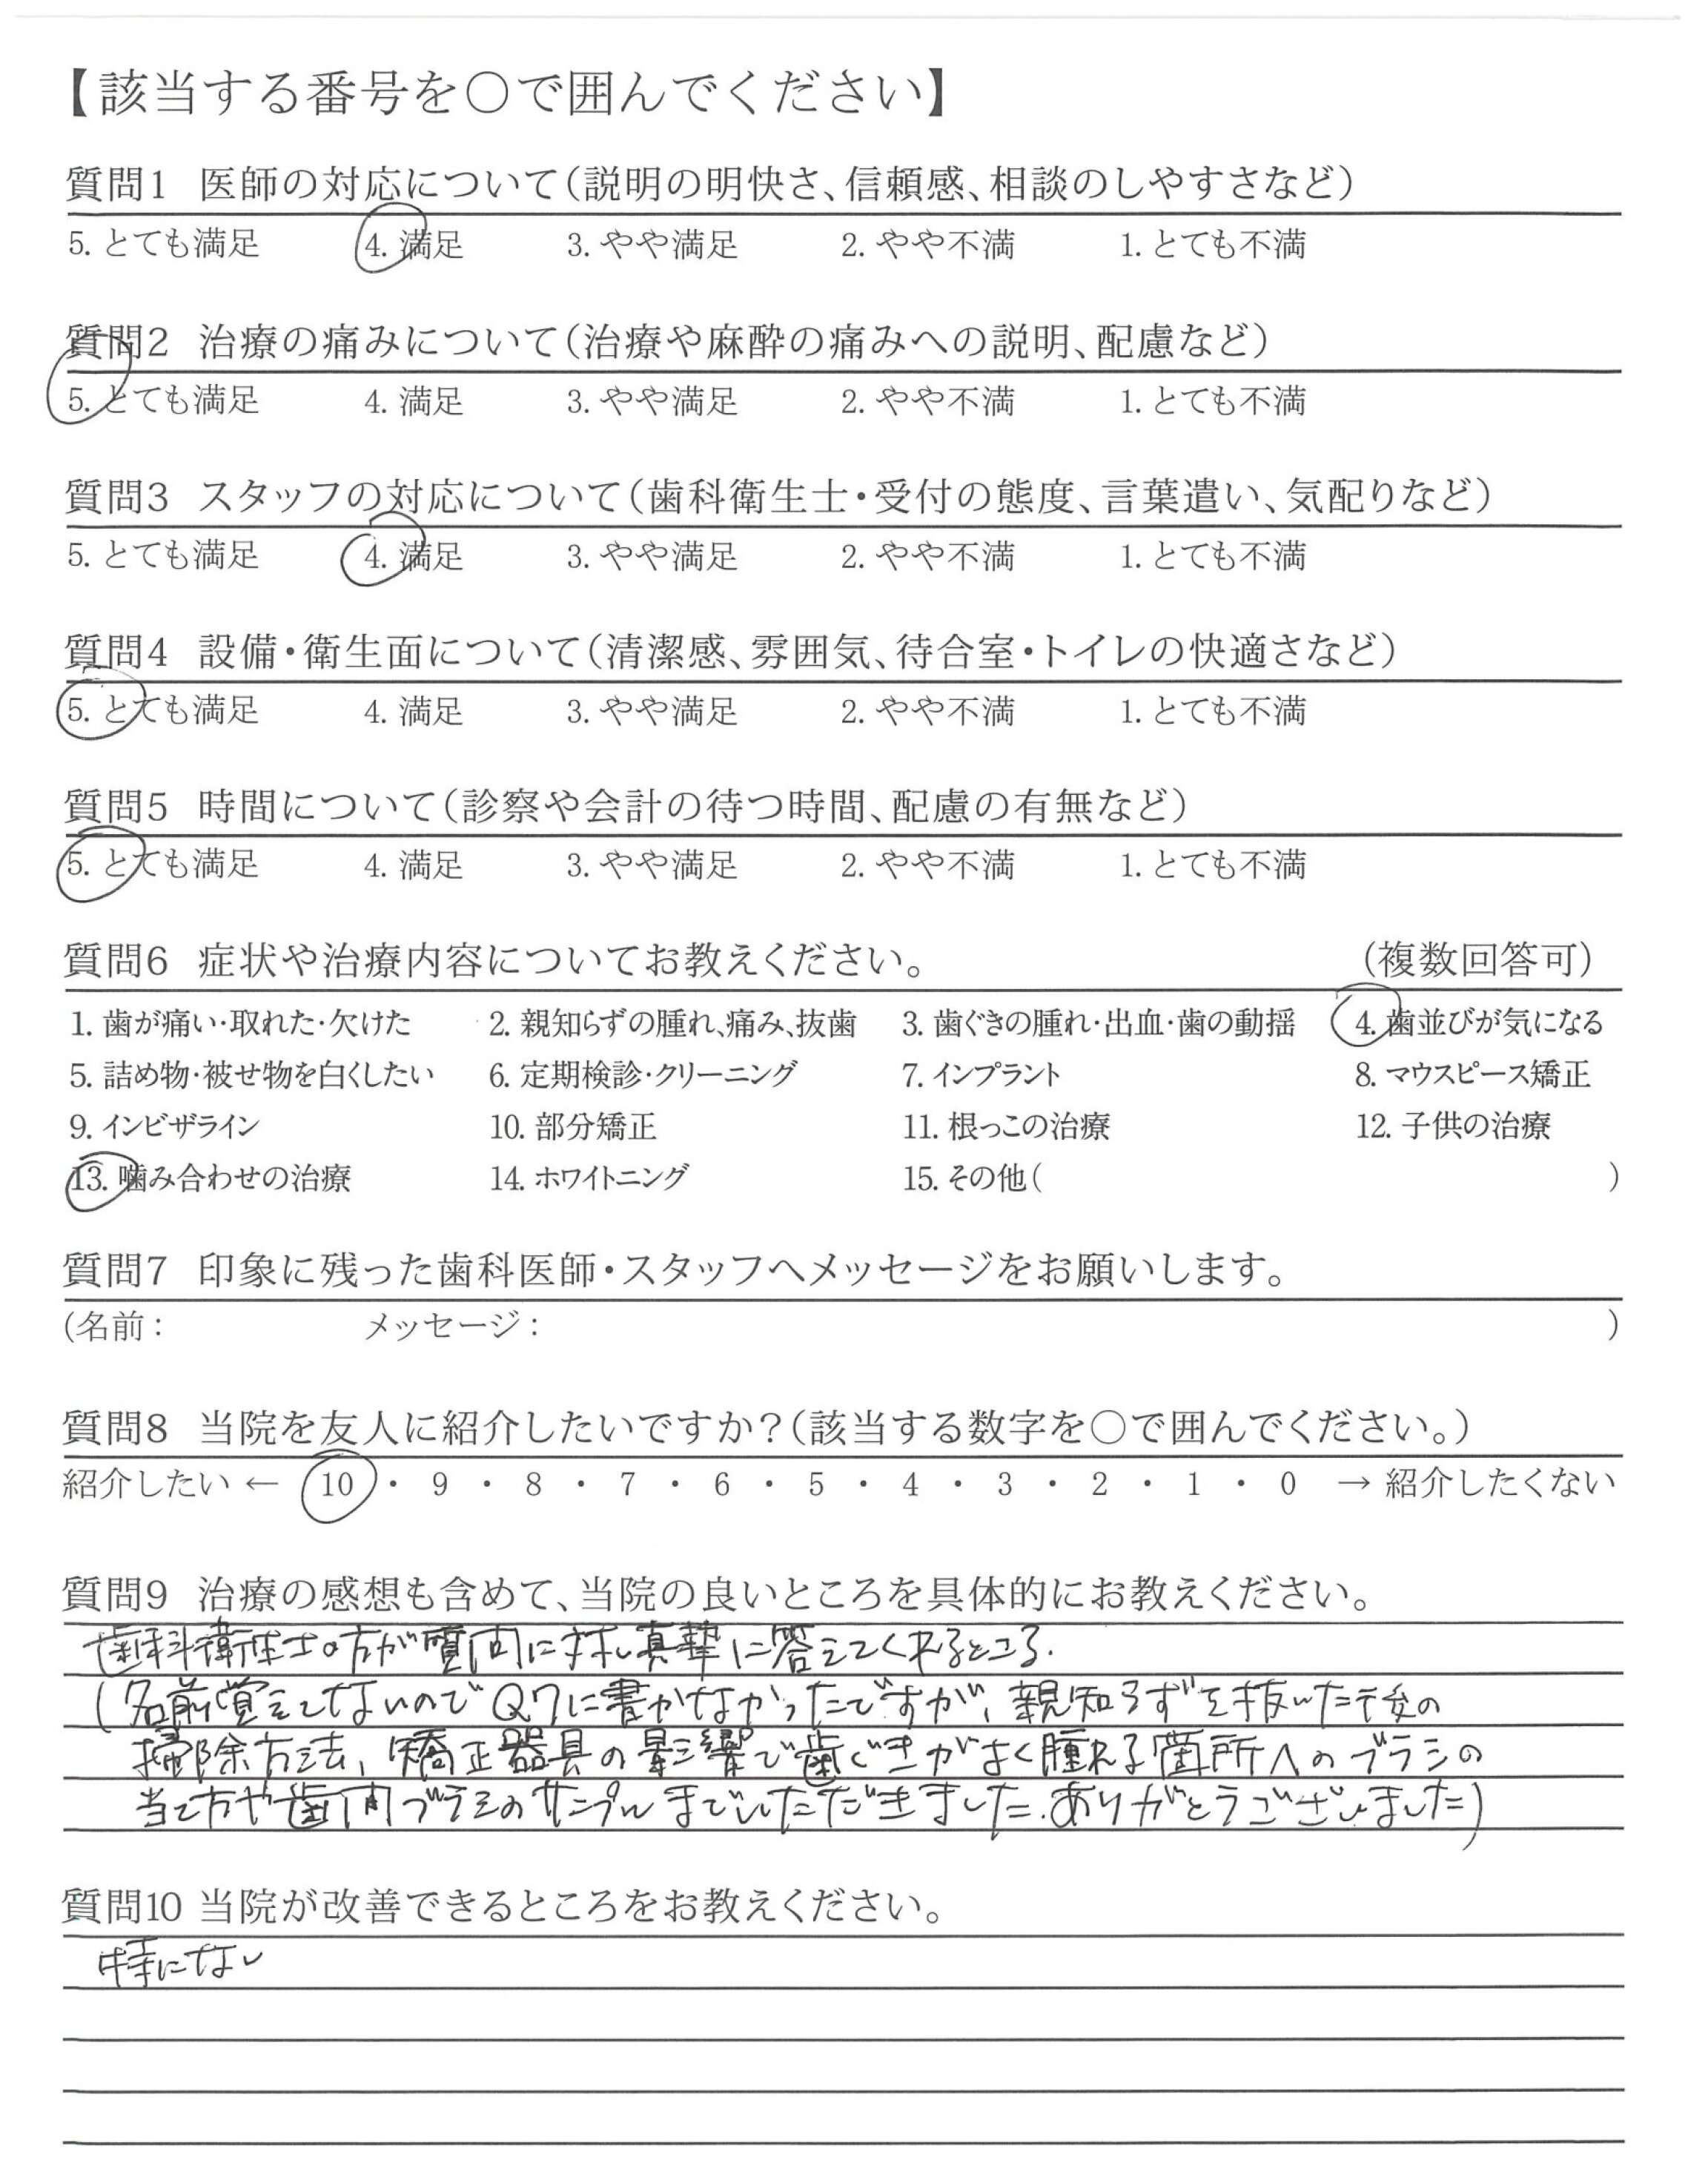 【該当する番号を○で囲んでください】
質問1 医師の対応について（説明の明快さ、信頼感、相談のしやすさなど）
5. とても満足 4. 満足 3. やや満足 2. やや不満 1. とても不満
質問2 治療の痛みについて（治療や麻酔の痛みへの説明、配慮など）
5. とても満足 4. 満足 3. やや満足 2. やや不満 1. とても不満
質問3 スタッフの対応について（歯科衛生士・受付の態度、言葉遣い、気配りなど）
5. とても満足 4. 満足 3. やや満足 2. やや不満 1. とても不満
質問4 設備・衛生面について（清潔感、雰囲気、待合室・トイレの快適さなど）
5. とても満足 4. 満足 3. やや満足 2. やや不満 1. とても不満
質問5 時間について（診察や会計の待つ時間、配慮の有無など）
5. とても満足 4. 満足 3. やや満足 2. やや不満 1. とても不満
質問6 症状や治療内容についてお教えください。 （複数回答可）
1. 歯が痛い・取れた・欠けた 2. 親知らずの腫れ、痛み、抜歯 3. 歯ぐきの腫れ・出血・歯の動揺 4. 歯並びが気になる
5. 詰め物・被せ物を白くしたい 6. 定期検診・クリーニング 7. インプラント 8. マウスピース矯正
9. インビザライン 10. 部分矯正 11. 根っこの治療 12. 子供の治療
13. 噛み合わせの治療 14. ホワイトニング 15. その他（ ）
質問7 印象に残った歯科医師・スタッフへメッセージをお願いします。
（名前： メッセージ： ）
質問8 当院を友人に紹介したいですか？（該当する数字を○で囲んでください。）
紹介したい ← 10 ・ 9 ・ 8 ・ 7 ・ 6 ・ 5 ・ 4 ・ 3 ・ 2 ・ 1 ・ 0 → 紹介したくない
質問9 治療の感想も含めて、当院の良いところを具体的にお教えください。
歯科衛生士の方が質問に対し真摯に答えてくれるところ.
(名前覚えてないのでQ7に書かなかったですが、親知らずを抜いた後の
掃除方法、矯正器具の影響で歯ぐきがよく腫れる箇所へのブラシの
当て方や歯間ブラシのサンプルまでいただきました.ありがとうございました)
質問10 当院が改善できるところをお教えください。
特にない